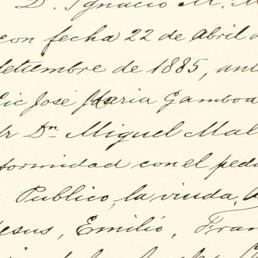 D. Ignacio M.
con fecha 22 de Abril
Setiembre de 1885, ant
Lic José Maria Gamboa
Dr Dn Miguel Mal
formidad con el ped
Publico, la viuda,
esus, Emilio, Fran